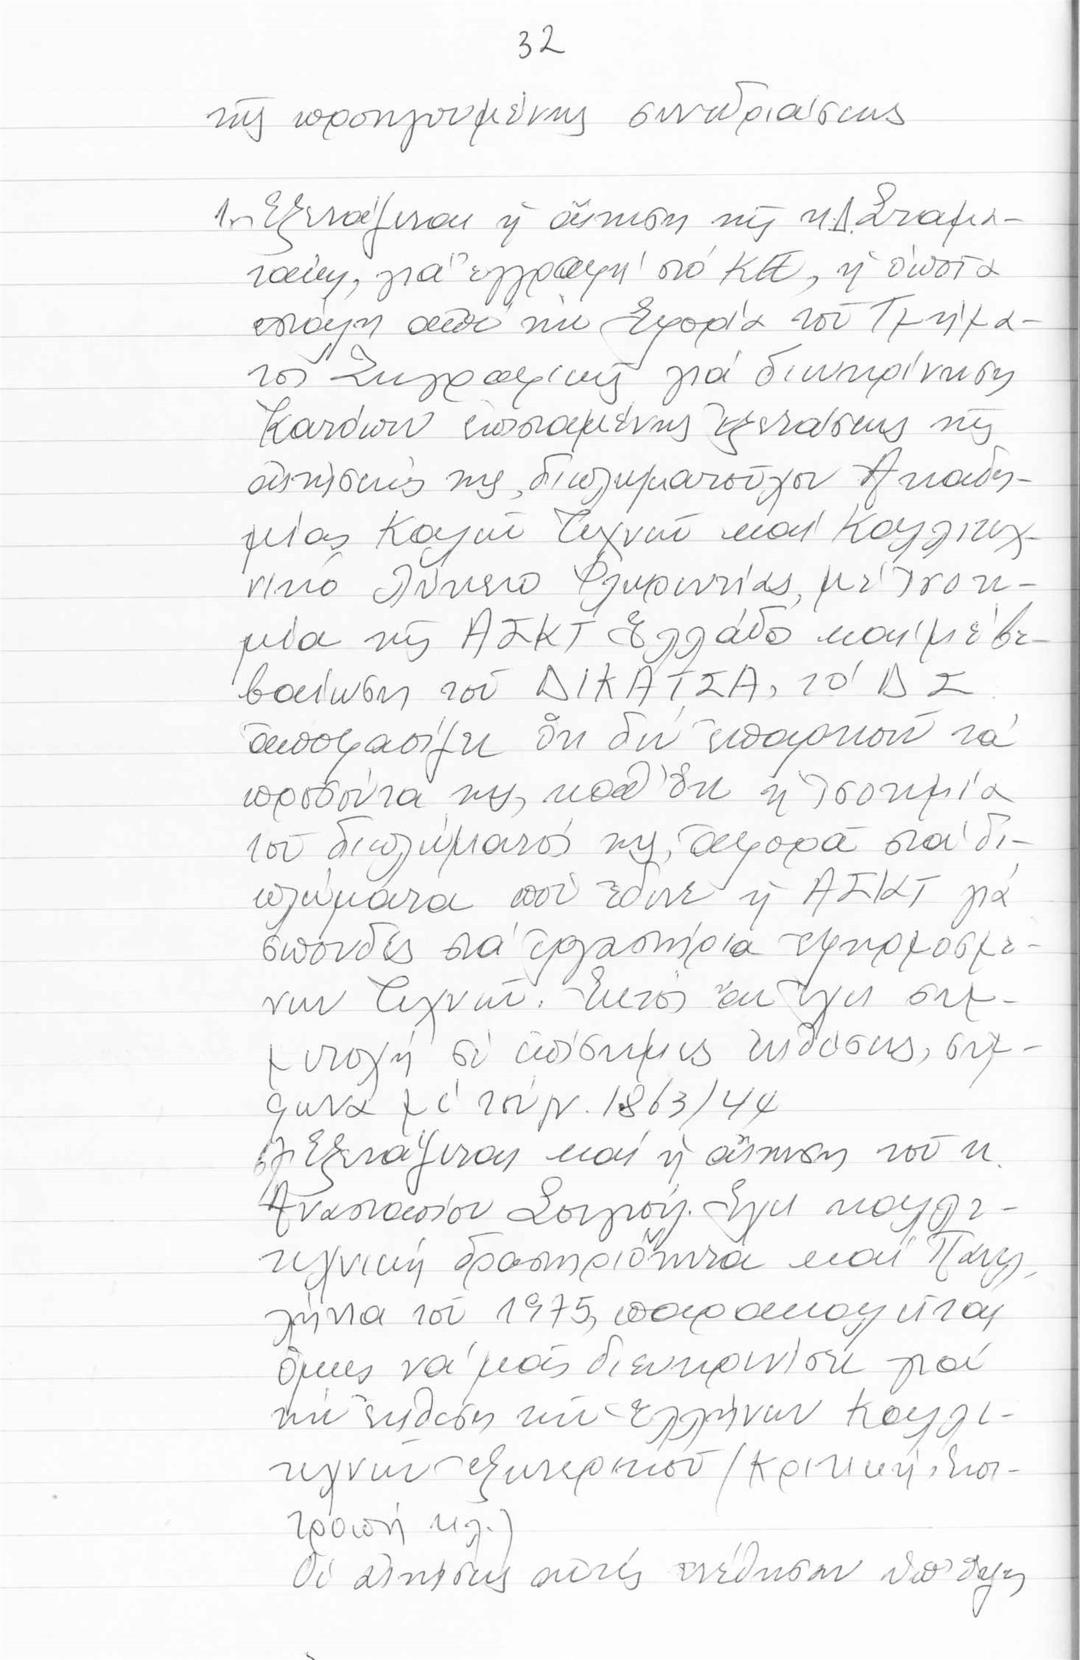 32
τῆς προηγουμένης συνεδριάσεως
1. Ἐξετάζεται ἡ αἴτηση τῆς κ. Δ. Σταμα-
τάκη, γιά ἐγγραφή στό ΚΕ, ἡ ὁποία
ἐστάλη ἀπό τήν Ἐφορία τοῦ Τμήμα-
τος Ζωγραφικῆς γιά διευκρίνηση
Κατόπιν ἐπισταμένης ἐξετάσεως τῆς
αἰτήσεώς της, διπλωματούχου Ἀκαδη-
μίας Καλῶν Τεχνῶν καί Καλλιτεχ-
νικό Λύκειο Φλωρεντίας, μέ ἰσοτι-
μία τῆς ΑΣΚΤ Ἑλλάδο καί μέ βε-
βαίωση τοῦ ΔΙΚΑΤΣΑ, τό ΔΣ
ἀποφασίζει ὅτι δέν ἐπαρκοῦν τά
προσόντα της, καθ' ὅτι ἡ ἰσοτιμία
τοῦ διπλώματός της, ἀφορᾶ στά δι-
πλώματα πού ἔδινε ἡ ΑΣΚΤ γιά
σπουδές στά ἐργαστήρια ἐφηρμοσμέ-
νων Τεχνῶν. Ἐκτός ἄν ἔχει συμ-
μετοχή σέ ἐπίσημες ἐκθέσεις, σύμ-
φωνα μέ τόν ν. 1863/44
Ἐξετάζεται καί ἡ αἴτηση τοῦ κ.
Ἀναστασίου. Ἔχει καλλι-
τεχνική δραστηριότητα καί Πανελ-
λήνια τοῦ 1975, παρακαλεῖται
ὅμως νά μᾶς διευκρινίσει γιά
τήν ἔκθεση τῶν Ἑλλήνων Καλλι-
τεχνῶν ἐξωτερικοῦ (Κριτική, Ἐπι-
τροπή κλ.)
Οἱ αἰτήσεις αὐτές ἐτέθησαν ὑπ' ὄψη